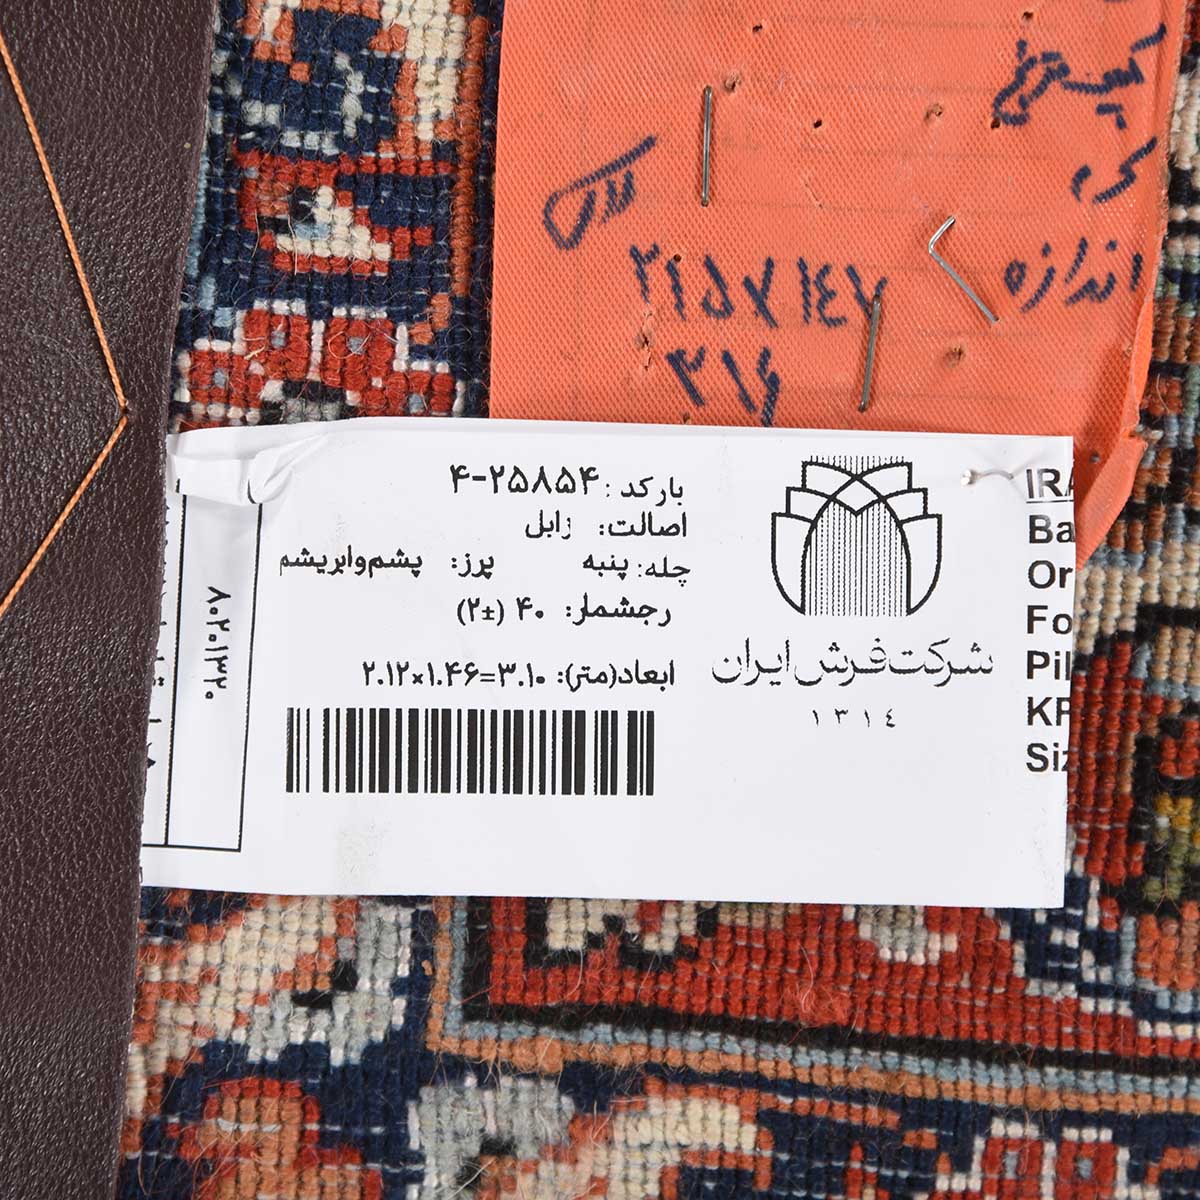 اندازه ۲۱۵×۱۴۷
۳۱۴
بارکد: ۴-۲۵۸۵۴
اصالت: زابل
چله: پنبه پرز: پشم‌وابریشم
رجشمار: ۴۰ (±۲)
ابعاد(متر): ۲.۱۲×۱.۴۶=۳.۱۰
شرکت فرش ایران
۱۳۱۴
IRA
Ba
Or
Fo
Pil
KP
Siz
۸۰۲۰۱۳۲۰